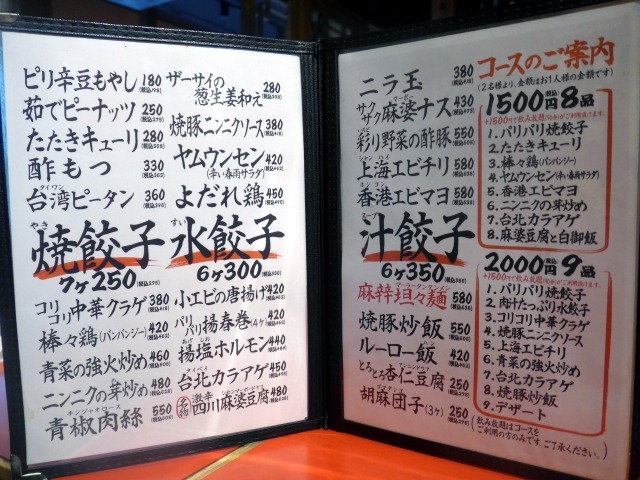 ピリ辛豆もやし 180
茹でピーナッツ 250
たたきキューリ 280
酢もつ 330
台湾ピータン 360
ザーサイの葱生姜和え 280
焼豚ニンニクソース 380
ヤムウンセン(辛い春雨サラダ) 420
よだれ鶏 450
焼餃子
7ケ250
水餃子
6ケ300
コリコリ中華クラゲ 380
棒々鶏(バンバンジー) 420
青菜の強火炒め 460
ニンニクの芽炒め 480
青椒肉絲 550
小エビの唐揚げ 420
パリパリ揚春巻(4ケ) 420
揚塩ホルモン 440
台北カラアゲ 480
名物 激辛四川麻婆豆腐 480
ニラ玉 380
サクサク麻婆ナス 430
彩り野菜の酢豚 550
上海エビチリ 580
香港エビマヨ 580
汁餃子
6ケ350
麻辣坦々麺 580
焼豚炒飯 550
ルーロー飯 420
とろとろ杏仁豆腐 250
胡麻団子(3ケ) 250
コースのご案内
(2名様より、金額はお1人様の金額です)
1500円8品
1.パリパリ焼餃子
2.たたきキューリ
3.棒々鶏(バンバンジー)
4.ヤムウンセン(辛い春雨サラダ)
5.香港エビマヨ
6.ニンニクの芽炒め
7.台北カラアゲ
8.麻婆豆腐と白御飯
2000円9品
1.パリパリ焼餃子
2.肉汁たっぷり水餃子
3.コリコリ中華クラゲ
4.焼豚ニンニクソース
5.上海エビチリ
6.青菜の強火炒め
7.台北カラアゲ
8.焼豚炒飯
9.デザート
(飲み放題はコースを
ご利用の方のみです、ご了承ください。)